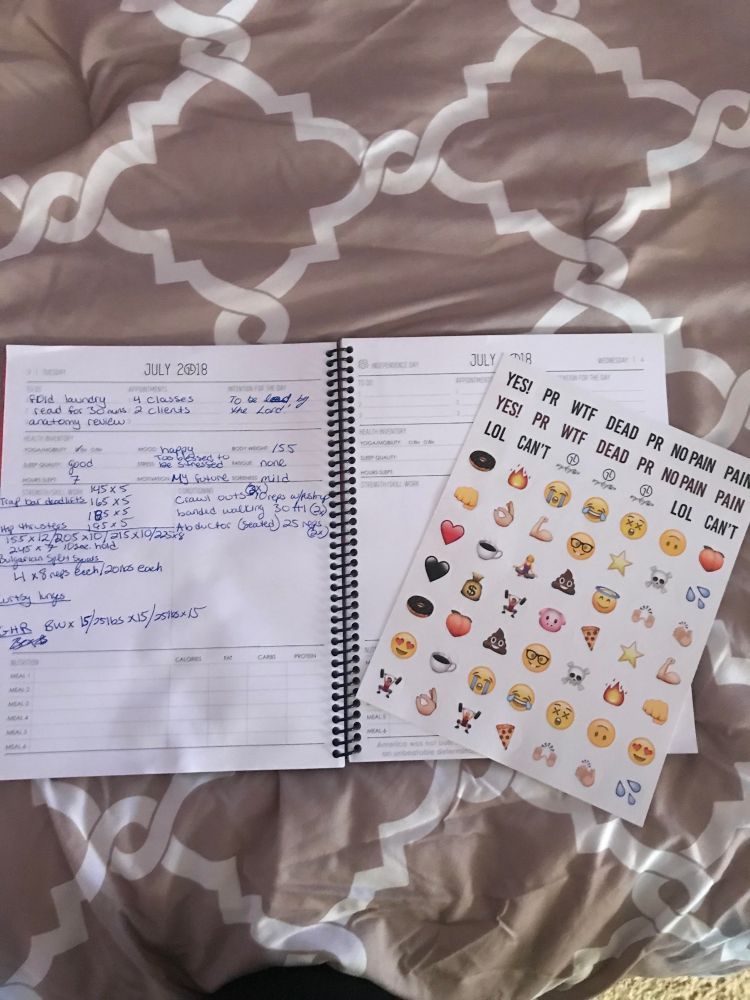 3 | TUESDAY
JULY 2018
TO DO
APPOINTMENTS
INTENTION FOR THE DAY
Fold laundry
read for 30 mins
anatomy review
4 classes
2 clients
To be lead by
the Lord!
HEALTH INVENTORY
YOGA/MOBILITY
MOOD: happy
BODY WEIGHT: 155
SLEEP QUALITY: good
STRESS: Too blessed to
be stressed
FATIGUE: none
HOURS SLEPT: 7
MOTIVATION: My future
SORENESS: mild
STRENGTH/SKILL WORK
CONDITIONING
145 x 5
Trap bar deadlifts 165 x 5
185 x 5
Hip thrusters 195 x 5
155 x 12/205 x 10/215 x 10/225x8
245 x 7 10sec hold
Bulgarian Split Squats
4 x 8 reps each/20lbs each
Curtsy lunges
GHR BW x 15/25lbs x 15/25lbs x 15
(3x)
Crawl outs 10 reps w/pushup
banded walking 30 ft (2x)
Abductor (seated) 25 reps
(2x)
NUTRITION CALORIES FAT CARBS PROTEIN
MEAL 1
MEAL 2
MEAL 3
MEAL 4
MEAL 5
MEAL 6
INDEPENDENCE DAY
JULY 2018
WEDNESDAY | 4
TO DO
HEALTH INVENTORY
YOGA/MOBILITY
SLEEP QUALITY:
HOURS SLEPT:
STRENGTH/SKILL WORK
MEAL 5
MEAL 6
America was not
an unbeatable
YES! PR WTF DEAD PR NO PAIN PAIN
YES! PR WTF DEAD PR NO PAIN PAIN
LOL CAN'T
LOL CAN'T